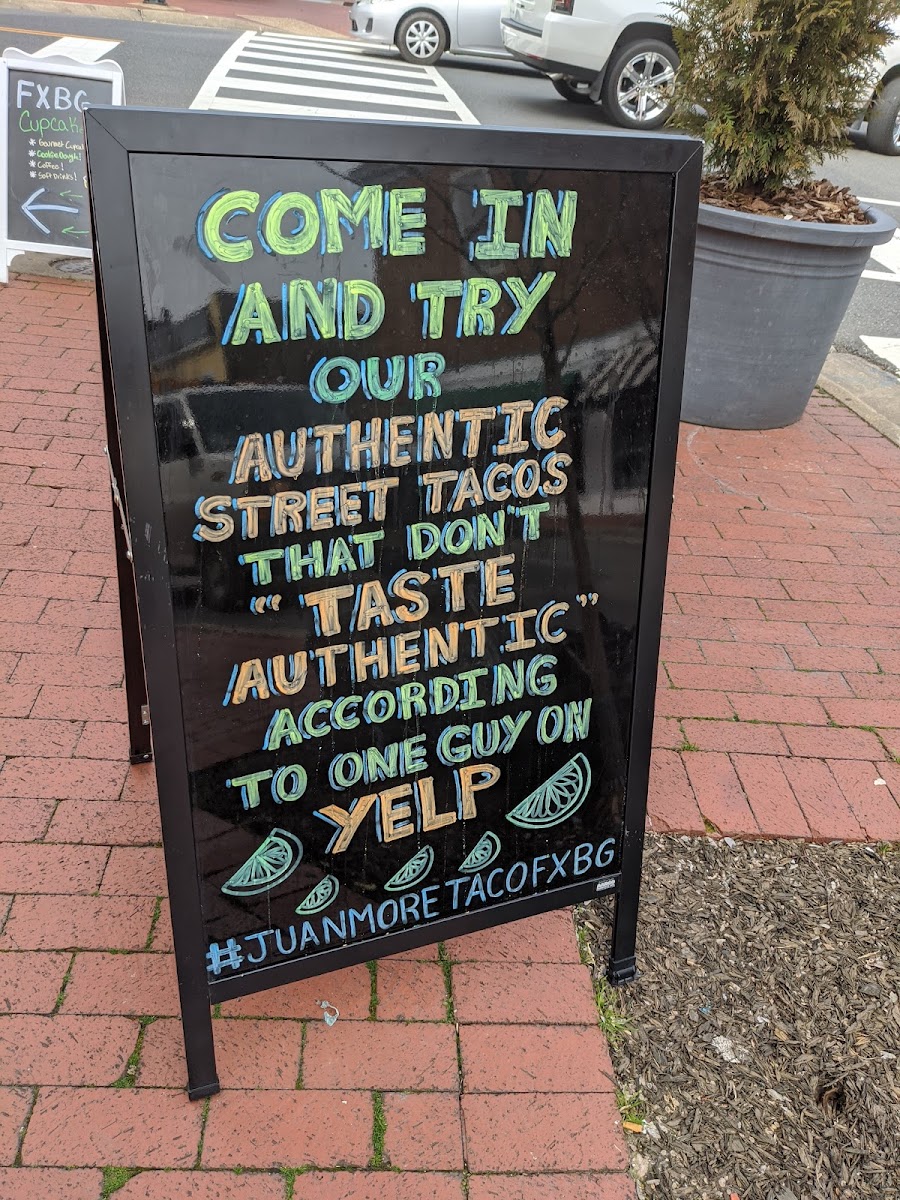 FXBG
Cupcak
* Gourmet Cupcak
* Cookie Dough!
* Coffee!
* Soft Drinks!
COME IN
AND TRY
OUR
AUTHENTIC
STREET TACOS
THAT DON'T
"TASTE
AUTHENTIC"
ACCORDING
TO ONE GUY ON
YELP
#JUANMORETACOFXBG